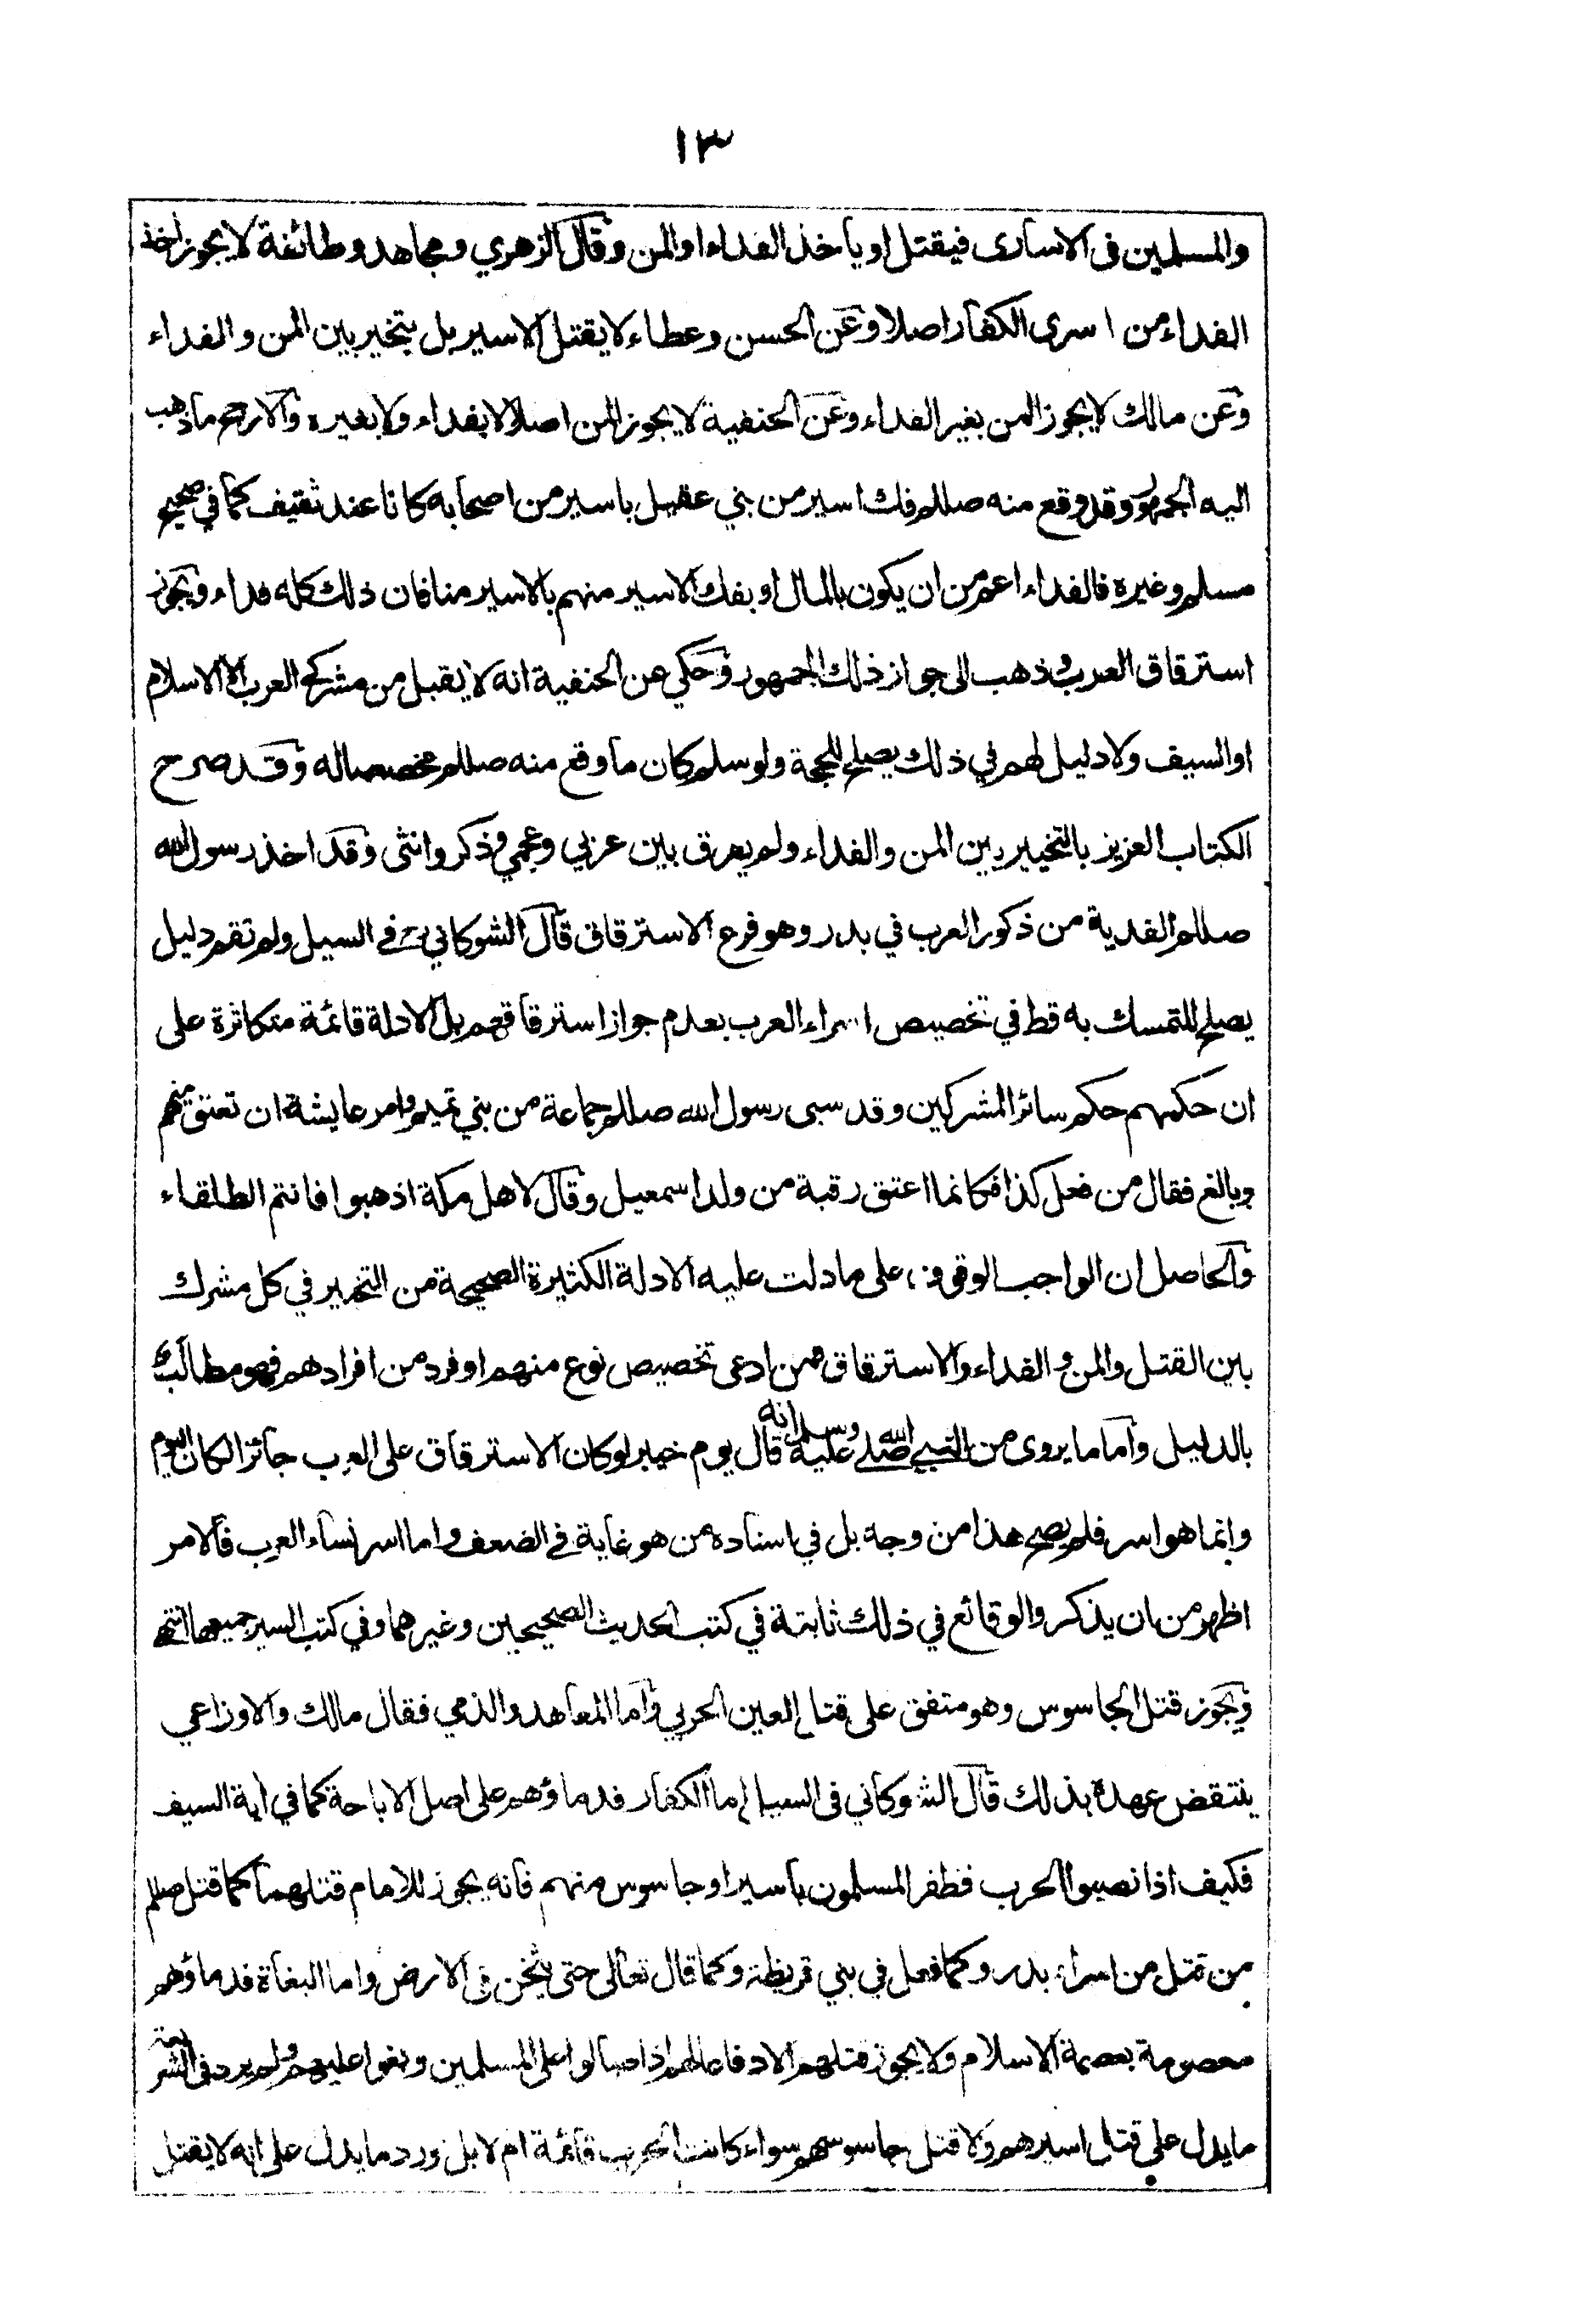 ١٣
والمسلمين فى الاسارى فيقتل او ياخذ الفداء او المن وقال الزهري ومجاهد وطائفة لا يجوز اخذ
الفداء من اسرى الكفار اصلا وعن الحسن وعطاء لا يقتل الاسير بل يتخير بين المن والفداء
وعن مالك لا يجوز المن بغير الفداء وعن الحنفية لا يجوز المن اصلا لا بفداء ولا بغيره والارجح ما ذهب
اليه الجمهور وقد وقع منه صللم فك اسير من بني عقيل باسير من اصحابه كانا عند ثقيف كما في صحيح
مسلم وغيره فالفداء اعم من ان يكون بالمال او بفك الاسير منهم بالاسير منا فان ذلك كله فداء ويجوز
استرقاق العرب وذهب الى جواز ذلك الجمهور وحكي عن الحنفية انه لا يقبل من مشركي العرب الا الاسلام
او السيف ولا دليل لهم في ذلك يصلح للحجة ولو سلم كان ما وقع منه صللم مخصصا له وقد صرح
الكتاب العزيز بالتخيير بين المن والفداء ولم يفرق بين عربي وعجمي وذكر وانثى وقد اخذ رسول الله
صللم الفدية من ذكور العرب في بدر وهو فرع الاسترقاق قال الشوكاني رح في السيل ولم تقم دليل
يصلح للتمسك به قط في تخصيص اسراء العرب بعدم جواز استرقاقهم بل الادلة قائمة متكاثرة على
ان حكمهم حكم سائر المشركين وقد سبى رسول الله صللم جماعة من بني تميم وامر عايشة ان تعتق منهم
وبالغ فقال من فعل كذا فكانما اعتق رقبة من ولد اسمعيل وقال لاهل مكة اذهبوا فانتم الطلقاء
والحاصل ان الواجب الوقوف على ما دلت عليه الادلة الكثيرة الصحيحة من التخيير في كل مشرك
بين القتل والمن والفداء والاسترقاق فمن ادعى تخصيص نوع منهم او فرد من افرادهم فهو مطالب
بالدليل واما ما يروى من النبي صلى الله عليه وسلم انه قال يوم خيبر لو كان الاسترقاق على العرب جائزا لكان اليوم
وانما هو اسر فلم يصح هذا من وجه بل في اسناده من هو غاية في الضعف واما اسر نساء العرب فالامر
اظهر من ان يذكر والوقائع في ذلك ثابتة في كتب الحديث الصحيحين وغيرهما وفي كتب السير جميعها انتهى
ويجوز قتل الجاسوس وهو متفق على قتل العين الحربي واما المعاهد والذمي فقال مالك والاوزاعي
ينتقض عهده بذلك قال الشوكاني فى السيل اما الكفار فدماؤهم على اصل الاباحة كما في اية السيف
فكيف اذا نصبوا الحرب فظفر المسلمون باسير او جاسوس منهم فانه يجوز للامام قتلهما كما قتل صللم
من قتل من اسراء بدر وكما فعل في بني قريظة وكما قال تعالى حتى يثخن فى الارض واما البغاة فدماؤهم
معصومة بعصمة الاسلام ولا يجوز قتلهم الا دفاعا لهم اذا صالوا على المسلمين وبغوا عليهم ولم يرد فى الشريعة
ما يدل على قتل اسيرهم ولا قتل جاسوسهم سواء كانت الحرب قائمة ام لا بل ورد ما يدل على انه لا يقتل